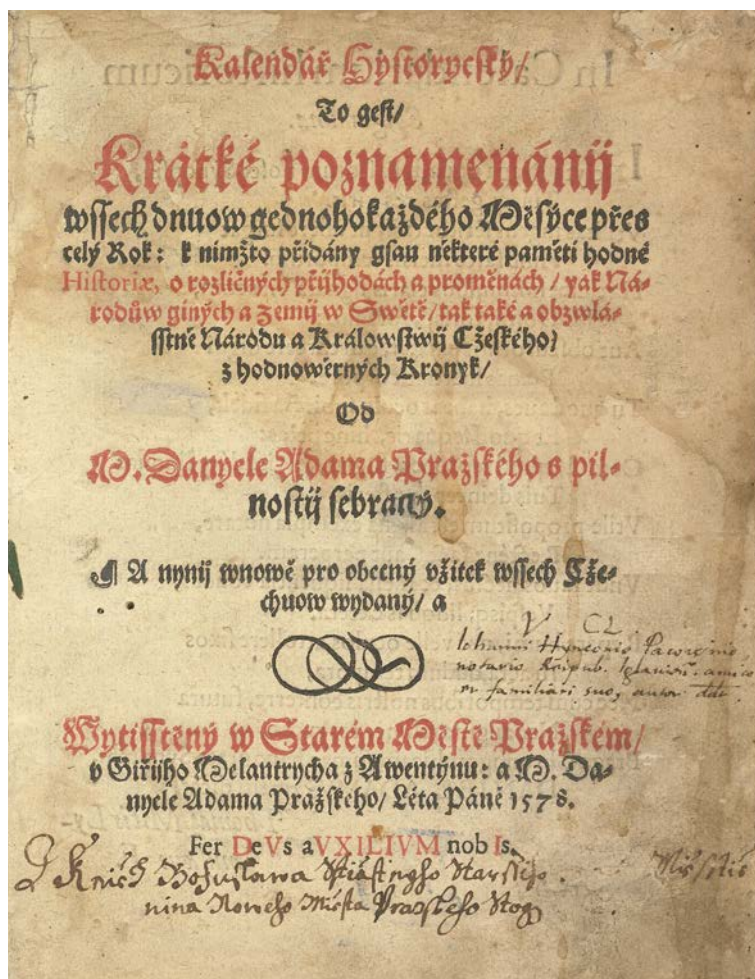 Kalendář Hystorycký/
To gest/
Krátké poznamenánij
wssech dnuow gednohokaždého Měsýce přes
celý Rok: k nimžto přidány gsau některé paměti hodné
Historiæ, o rozličných přijhodách a proměnách / yak Ná-
rodůw giných a Zemij w Swětě / tak také a obzwlá-
sstně Národu a Králowstwij Cžeského /
z hodnowěrných Kronyk /
Od
M. Danyele Adama Pražského s pil-
nostij sebraný.
¶ A nynij wnowě pro obecný vžitek wssech Cže-
chuow wydaný / a
V CL
Iohanni Hynconio
notario Reipub. amico
et familiari suo, autor ddt.
Wytisstěný w Starém Městě Pražském /
v Giřijho Melantrycha z Awentýnu: a M. Da-
nyele Adama Pražského / Léta Páně 1578.
Fer De Vs aVXILIVM nob Is.
Z Knich Bohuslawa Starssiho
nina Noweho Miesta Prazskeho